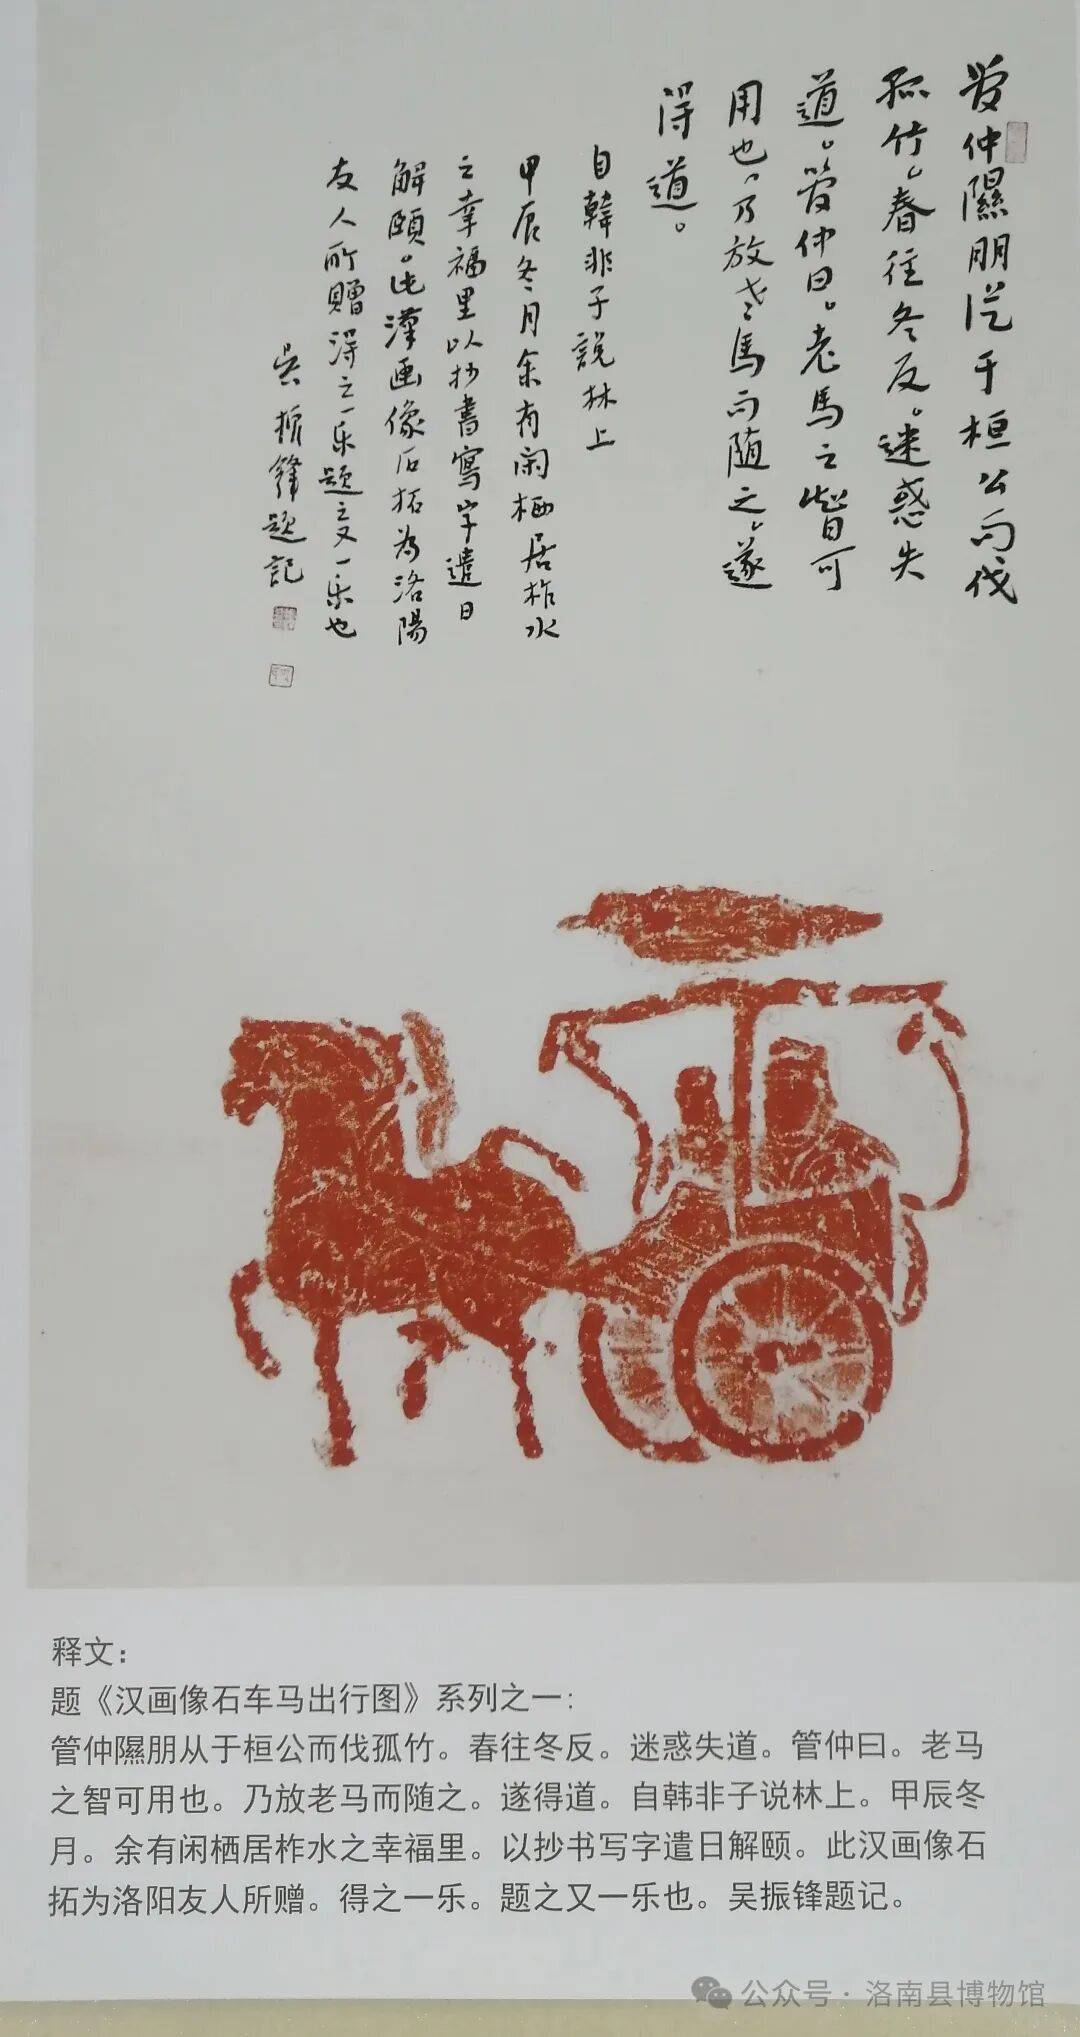 管仲隰朋從于桓公而伐
孤竹。春往冬反。迷惑失
道。管仲曰。老馬之智可
用也。乃放老馬而随之。遂
得道。
自韓非子說林上
甲辰冬月余有闲栖居柞水
之幸福里以抄書寫字遣日
解頤。此漢画像石拓为洛陽
友人所贈得之一乐题之又一乐也
吴振鋒题記
释文：
题《汉画像石车马出行图》系列之一：
管仲隰朋从于桓公而伐孤竹。春往冬反。迷惑失道。管仲曰。老马
之智可用也。乃放老马而随之。遂得道。自韩非子说林上。甲辰冬
月。余有闲栖居柞水之幸福里。以抄书写字遣日解颐。此汉画像石
拓为洛阳友人所赠。得之一乐。题之又一乐也。吴振锋题记。
公众号·洛南县博物馆